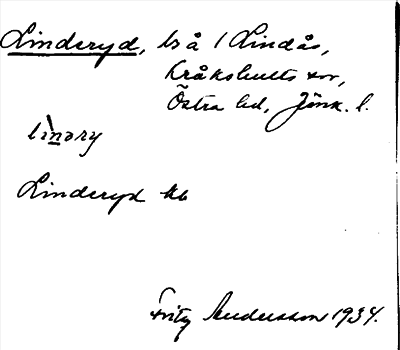 Linderyd, bs å 1 Lindås,
Kråkshults sn,
Östra hd, Jönk. l.
lìnəry
Linderyd kb
Fritz Andersson 1934.